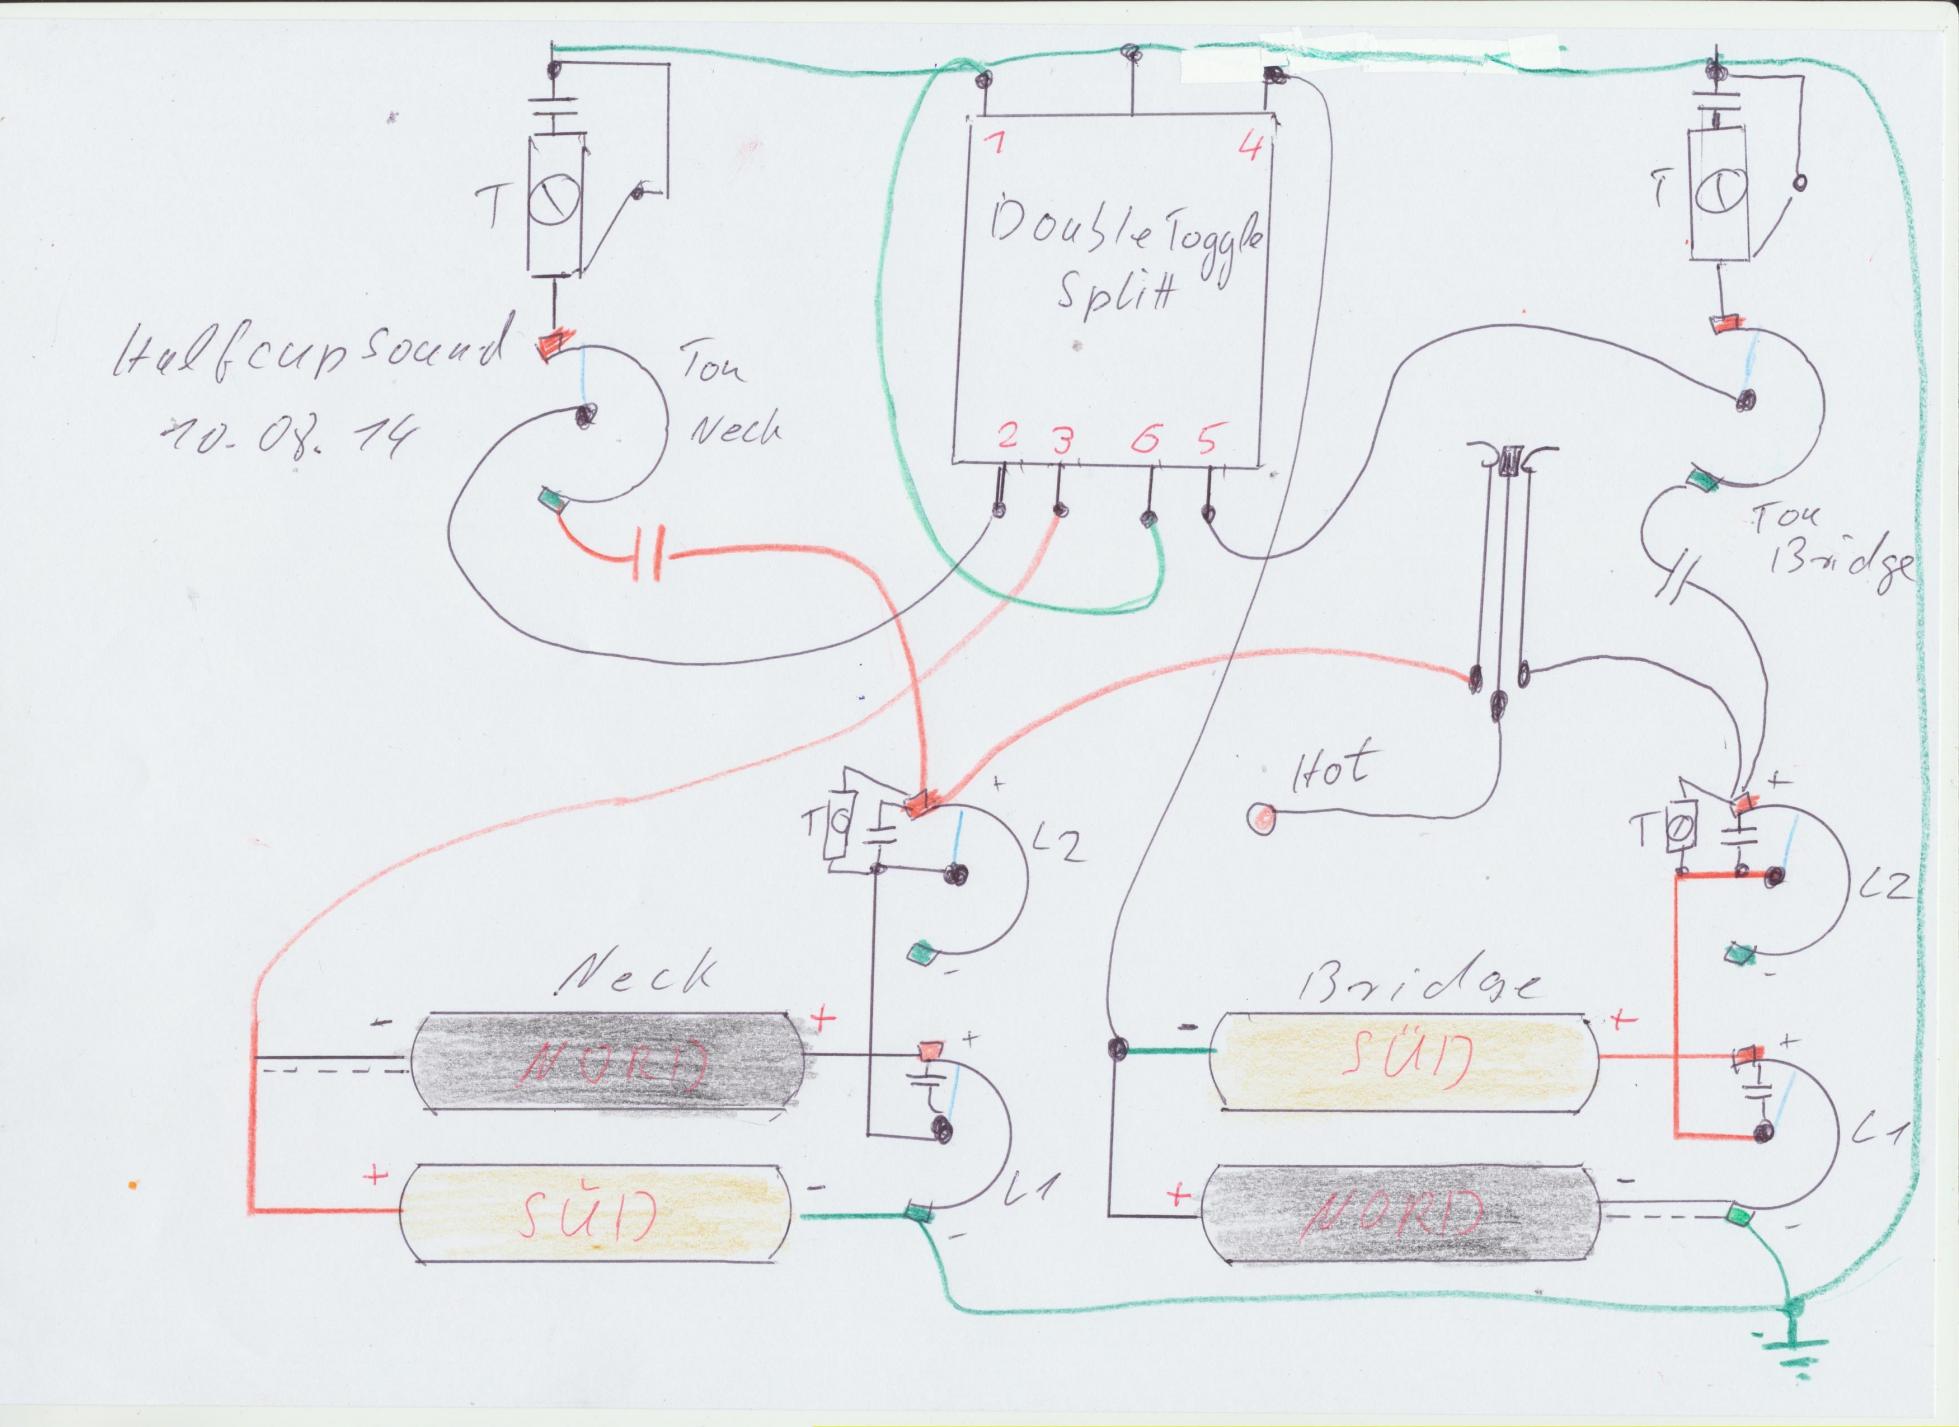 1 4
T
T
Double Toggle
Splitt
Halfcup Sound
Ton
Neck
10.08.14
2 3 6 5
Ton
Bridge
Hot
+
+
T
L2
T
L2
-
-
Neck
Bridge
-
NORD
+
+
-
SÜD
+
+
+
SÜD
-
L1
-
+
NORD
-
L1
-